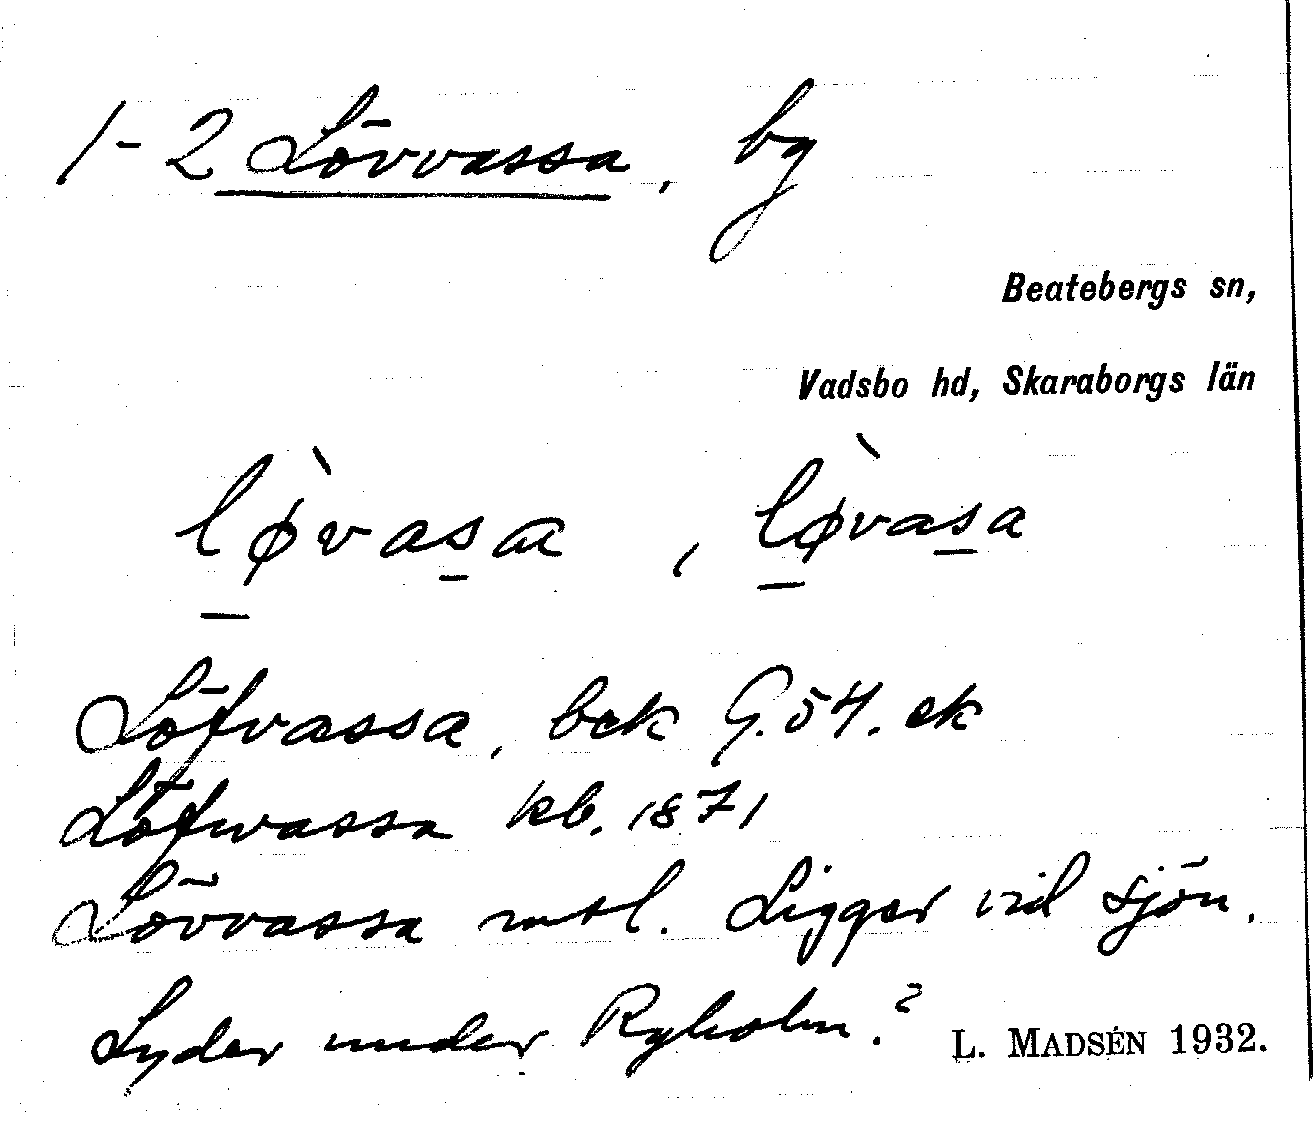 1-2 Lövvassa, by
Beatebergs sn,
Vadsbo hd, Skaraborgs län
lø̀vasa, lø̀vasa
Löfvassa, bek G. 54. ek
Löfwassa kb. 1871
Lövvassa mtl. Ligger vid sjön.
Lyder under Ryholm.?
L. MADSÉN 1932.